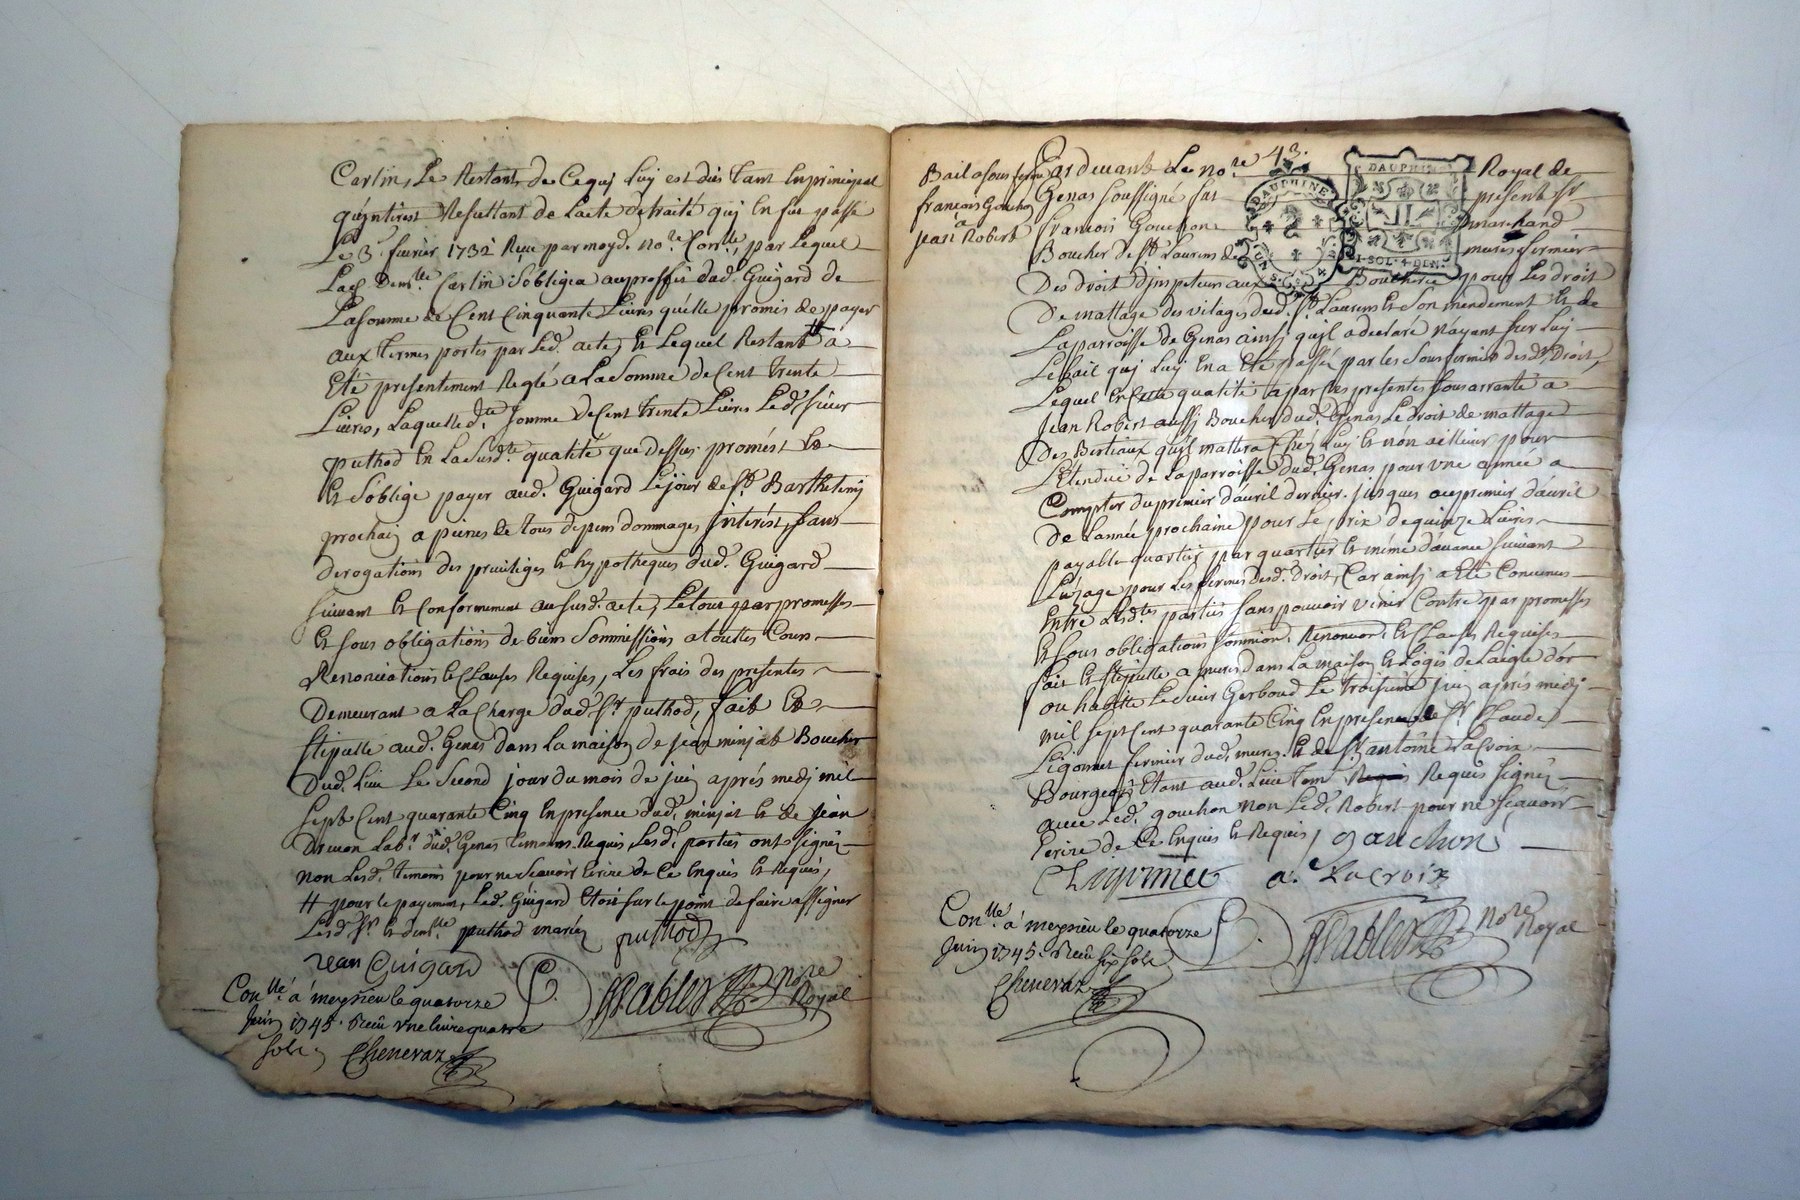 Carlin, Le Restant de Ce quj Luy est dûs tant en principal
qu'jntirest Resultant de Lacte de traité quj en fut passé
Le 3e. feuvrier 1732 Reçu par moyd. no.re Con.lle, par Lequel
Lad. Dem.lle Carlin sobligea au proffis dud. Guigard de
La somme de Cent Cinquante Liures quelle promis de payer
aux termes portés par Led. acte, et Lequel Restant a
Eté presentement Reglé a La Somme de Cent trente
Liures, Laquelle d.te somme de Cent trente Liures Led. sieur
puthod en La susd.te qualité que dessus promest et
et s'oblige payer aud. Guigard Le jour de st. Barthelemj
prochain a peines de tous depens dommages jnterest, sans
derogations des priuileges et hypotheques dud. Guigard
suiuant et Conformement au susd. acte, Le tout par promesses
et sous obligations de biens sommissions a touttes Cours
Renonciations et Clauses Requises, Les frais des presentes
Demeurant a La Charge dud. sr. puthod, fait et
stipullé aud. Genas dans La maison de jean minjat Boucher
dud. Lieu Le second jour du mois de juin aprés medj mil
sept Cent quarante Cinq en presence dud. minjat et de jean
Lab.r dud. Genas temoins Requis, Les d. parties ont signéz
non Lesd. temoins pour ne scauoir Ecrire de Ce Enquis et Requis,
# pour le payement, Led. Guigard Etoit sur le point de faire assigner
Lesd. sr. et dem.lle puthod mariéz puthod
jean Guigard
Con.lle á meysieu le quatorze
Juin 1745. Receu une liure quatre
sols Cheneraz
no.re Royal
Bail a sous ferme
françois Gouchon
à
jean Robert
43.
Pardeuant Le no.re Royal de
Genas soussigné fut present sr.
francois Gouchon marchand
Boucher de st. Laurens de mures fermier
DAUPHINE
DAUPHINE
II
1. SOL. 4. DEN.
Des droit d'jnspeteurs aux Boucherie pour Les droit
De mattage des vilages dud. st. Laurens et son mendement et de
La parroisse de Genas ainsj qu'jl a declaré n'ayant sur Luy
Le bail quj Luy en a été passée par les sous fermier desd. Droit,
Lequel en Cette qualité a par Ces presentes sous arranté a
jean Robert aussj Boucher dud. Genas Le droit de mattage
Des Bestiaux qu'jl mattera Chez Luy et non ailleur pour
L'Etenduë de La parroisse dud. Genas pour vne année a
Compter du premier d'auril dernier jusques au premier d'auril
De L'année prochaine pour Le prix de quinze Liures
payable quartier par quartier et méme d'auance suiuant
L'uzage pour Les fermes desd. Droit, Car ainsj a Eté Conuenus
Entre Lesd.tes parties sans pouvoir venir Contre par promesses
et sous obligations sommion. Renoncion. et Clauses Requises
fait et stipullé a mures dans La maison et Logis de Laigle dor
ou habitte Le sieur Gerboud Le troisieme juin aprés midj
mil sept Cent quarante Cinq en presence de sr. Claude
Ligonnet fermier dud. mures et de sr. antoine Lacroix
Bourgeois Etant aud. Lieu tem. Requis signéz
auec Led. gouchon non Led. Robert pour ne scauoir
Ecrire de Ce Enquis et Requis, gouchon
a. Lacroix
Con.lle á meysieu le quatorze
Juin 1745. Receu six sols
Cheneraz
no.re Royal